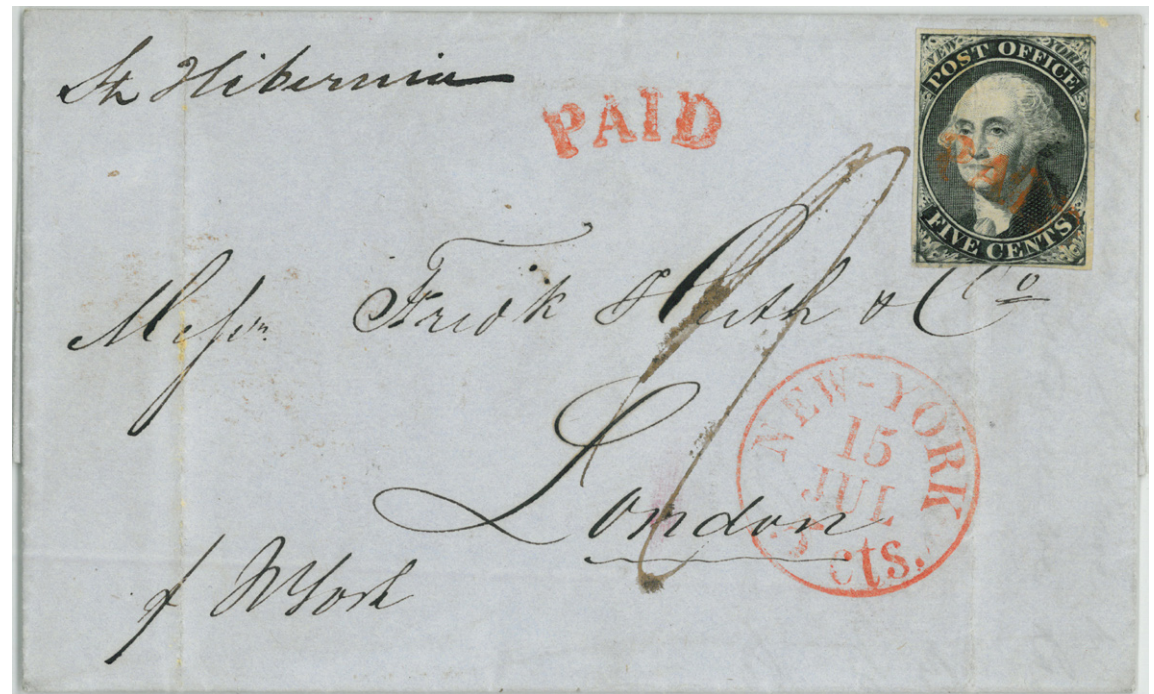 St Hibernia
PAID
NEW YORK
POST OFFICE
FIVE CENTS
PAID
Messrs. Fredk Huth & Co
London
NEW-YORK
15
JUL
5 cts.
N York